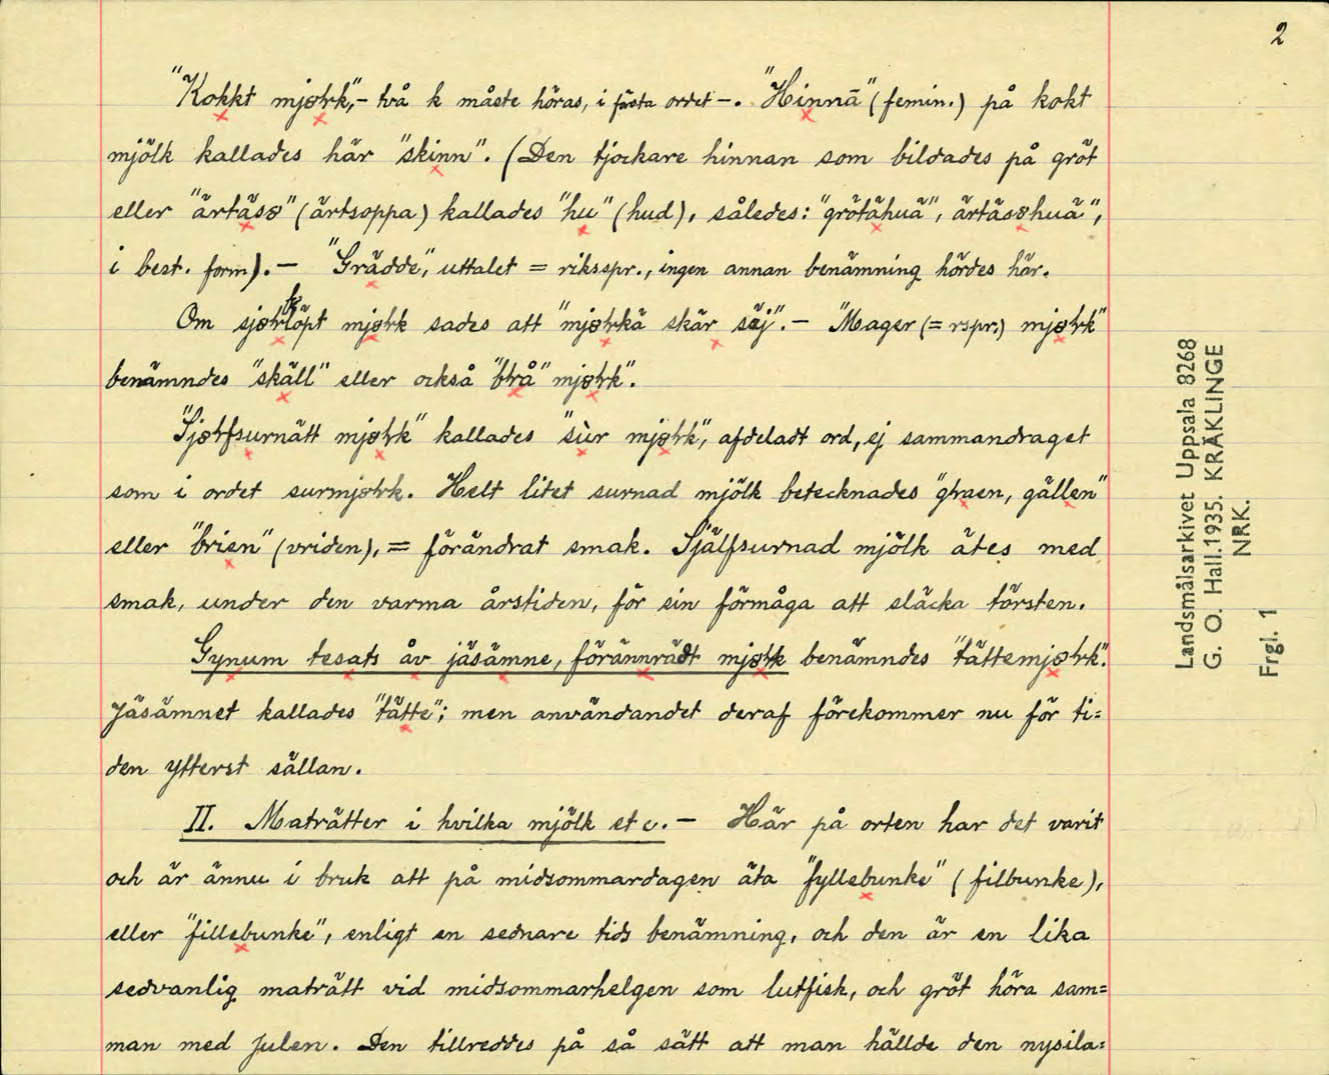 2
"Kokkt mjøłrk", - två k måste höras, i första ordet -. "Hinnä" (femin.) på kokt
mjölk kallades här "skinn". (Den tjockare hinnan som bildades på gröt
eller "ärtäsø" (ärtsoppa) kallades "hu" (hud), således: "grötähuä", ärtäsøhuä",
i best. form). - "Grädde", uttalet = riksspr., ingen annan benämning hördes här.
Om mjøłrk sades att "mjøłrkä skär säj". - "Mager (= rspr.) mjøłrk"
benämndes "skäll" eller också "błrå" mjøłrk".
"Sjøłrfsurnätt mjøłrk" kallades "sùr mjøłrk", afdeladt ord, ej sammandraget
som i ordet surmjøłrk. Helt litet surnad mjölk betecknades "głraen, gällen"
eller "brien" (vriden), = förändrat smak. Själfsurnad mjölk ätes med
smak, under den varma årstiden, för sin förmåga att släcka törsten.
Gynum tesats åv jäsämne, förännrädt mjøłrk benämndes "tättemjøłrk".
Jäsämnet kallades "tätte"; men användandet deraf förekommer nu för ti=
den ytterst sällan.
II. Maträtter i hvilka mjölk etc. - Här på orten har det varit
och är ännu i bruk att på midsommardagen äta "fyllebunke" (filbunke),
eller "fillebunke", enligt en sednare tids benämning, och den är en lika
sedvanlig maträtt vid midsommarhelgen som lutfisk, och gröt höra sam=
man med julen. Den tillreddes på så sätt att man hällde den nysila=
Landsmålsarkivet Uppsala 8268
G. O. Hall. 1935. KRÄKLINGE
NRK.
Frgl. 1